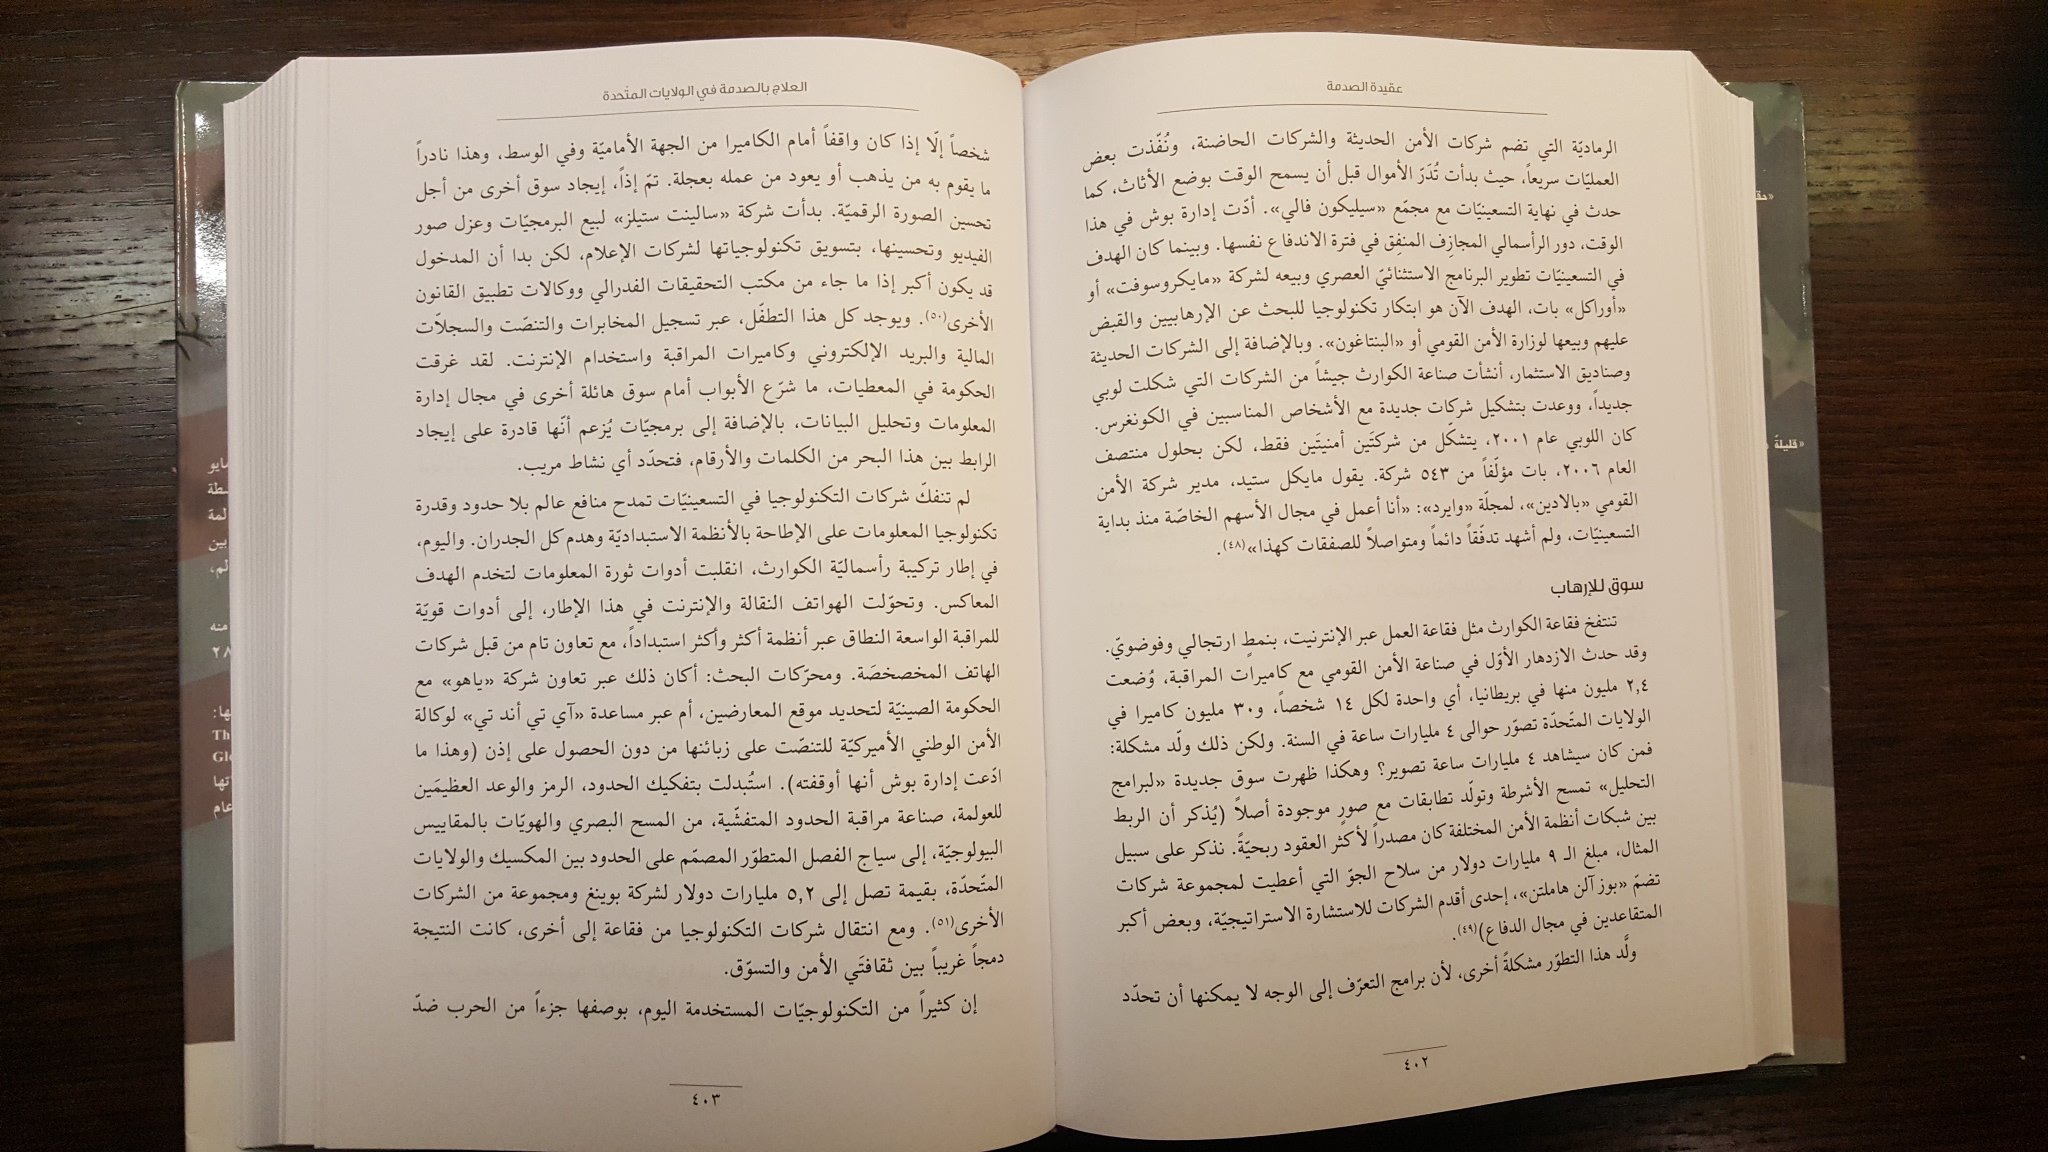 عقيدة الصدمة
الرماديّة التي تضم شركات الأمن الحديثة والشركات الحاضنة، ونُفّذت بعض
العمليّات سريعاً، حيث بدأت تُدَرّ الأموال قبل أن يسمح الوقت بوضع الأثاث، كما
حدث في نهاية التسعينيّات مع مجمّع «سيليكون فالي». أدّت إدارة بوش في هذا
الوقت، دور الرأسمالي المجازِف المنفِق في فترة الاندفاع نفسها. وبينما كان الهدف
في التسعينيّات تطوير البرنامج الاستثنائيّ العصري وبيعه لشركة «مايكروسوفت» أو
«أوراكل» بات، الهدف الآن هو ابتكار تكنولوجيا للبحث عن الإرهابيين والقبض
عليهم وبيعها لوزارة الأمن القومي أو «البنتاغون». وبالإضافة إلى الشركات الحديثة
وصناديق الاستثمار، أنشأت صناعة الكوارث جيشاً من الشركات التي شكلت لوبي
جديداً، ووعدت بتشكيل شركات جديدة مع الأشخاص المناسبين في الكونغرس.
كان اللوبي عام ٢٠٠١، يتشكّل من شركتَين أمنيتَين فقط، لكن بحلول منتصف
العام ٢٠٠٦، بات مؤلّفاً من ٥٤٣ شركة. يقول مايكل ستيد، مدير شركة الأمن
القومي «بالادين»، لمجلّة «وايرد»: «أنا أعمل في مجال الأسهم الخاصّة منذ بداية
التسعينيّات، ولم أشهد تدفّقاً دائماً ومتواصلاً للصفقات كهذا»(٤٨).
سوق للإرهاب
تنتفخ فقاعة الكوارث مثل فقاعة العمل عبر الإنترنيت، بنمطٍ ارتجالي وفوضويّ.
وقد حدث الازدهار الأوّل في صناعة الأمن القومي مع كاميرات المراقبة، وُضعت
٢,٤ مليون منها في بريطانيا، أي واحدة لكل ١٤ شخصاً، و٣٠ مليون كاميرا في
الولايات المتّحدة تصوّر حوالى ٤ مليارات ساعة في السنة. ولكن ذلك ولّد مشكلة:
فمن كان سيشاهد ٤ مليارات ساعة تصوير؟ وهكذا ظهرت سوق جديدة «لبرامج
التحليل» تمسح الأشرطة وتولّد تطابقات مع صورٍ موجودة أصلاً (يُذكر أن الربط
بين شبكات أنظمة الأمن المختلفة كان مصدراً لأكثر العقود ربحيّةً. نذكر على سبيل
المثال، مبلغ الـ ٩ مليارات دولار من سلاح الجوّ التي أعطيت لمجموعة شركات
تضمّ «بوز آلن هاملتن»، إحدى أقدم الشركات للاستشارة الاستراتيجيّة، وبعض أكبر
المتقاعدين في مجال الدفاع)(٤٩).
ولَّد هذا التطوّر مشكلةً أخرى، لأن برامج التعرّف إلى الوجه لا يمكنها أن تحدّد
٤٠٢
العلاج بالصدمة في الولايات المتّحدة
شخصاً إلّا إذا كان واقفاً أمام الكاميرا من الجهة الأماميّة وفي الوسط، وهذا نادراً
ما يقوم به من يذهب أو يعود من عمله بعجلة. تمّ إذاً، إيجاد سوق أخرى من أجل
تحسين الصورة الرقميّة. بدأت شركة «سالينت ستيلز» لبيع البرمجيّات وعزل صور
الفيديو وتحسينها، بتسويق تكنولوجياتها لشركات الإعلام، لكن بدا أن المدخول
قد يكون أكبر إذا ما جاء من مكتب التحقيقات الفدرالي ووكالات تطبيق القانون
الأخرى(٥٠). ويوجد كل هذا التطفّل، عبر تسجيل المخابرات والتنصّت والسجلاّت
المالية والبريد الإلكتروني وكاميرات المراقبة واستخدام الإنترنت. لقد غرقت
الحكومة في المعطيات، ما شرّع الأبواب أمام سوق هائلة أخرى في مجال إدارة
المعلومات وتحليل البيانات، بالإضافة إلى برمجيّات يُزعم أنّها قادرة على إيجاد
الرابط بين هذا البحر من الكلمات والأرقام، فتحدّد أي نشاط مريب.
لم تنفكّ شركات التكنولوجيا في التسعينيّات تمدح منافع عالم بلا حدود وقدرة
تكنولوجيا المعلومات على الإطاحة بالأنظمة الاستبداديّة وهدم كل الجدران. واليوم،
في إطار تركيبة رأسماليّة الكوارث، انقلبت أدوات ثورة المعلومات لتخدم الهدف
المعاكس. وتحوّلت الهواتف النقالة والإنترنت في هذا الإطار، إلى أدوات قويّة
للمراقبة الواسعة النطاق عبر أنظمة أكثر وأكثر استبداداً، مع تعاون تام من قبل شركات
الهاتف المخصخصَة. ومحرّكات البحث: أكان ذلك عبر تعاون شركة «ياهو» مع
الحكومة الصينيّة لتحديد موقع المعارضين، أم عبر مساعدة «آي تي أند تي» لوكالة
الأمن الوطني الأميركيّة للتنصّت على زبائنها من دون الحصول على إذن (وهذا ما
ادّعت إدارة بوش أنها أوقفته). استُبدلت بتفكيك الحدود، الرمز والوعد العظيمَين
للعولمة، صناعة مراقبة الحدود المتفشّية، من المسح البصري والهويّات بالمقاييس
البيولوجيّة، إلى سياج الفصل المتطوّر المصمّم على الحدود بين المكسيك والولايات
المتّحدة، بقيمة تصل إلى ٥,٢ مليارات دولار لشركة بوينغ ومجموعة من الشركات
الأخرى(٥١). ومع انتقال شركات التكنولوجيا من فقاعة إلى أخرى، كانت النتيجة
دمجاً غريباً بين ثقافتَي الأمن والتسوّق.
إن كثيراً من التكنولوجيّات المستخدمة اليوم، بوصفها جزءاً من الحرب ضدّ
٤٠٣